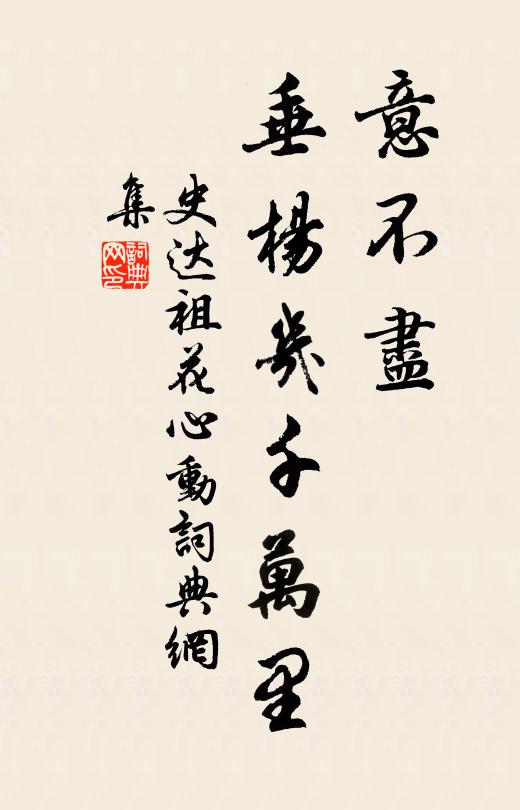 意不盡
垂楊幾千萬里
史达祖花心動詞典網
集
詞典
网印